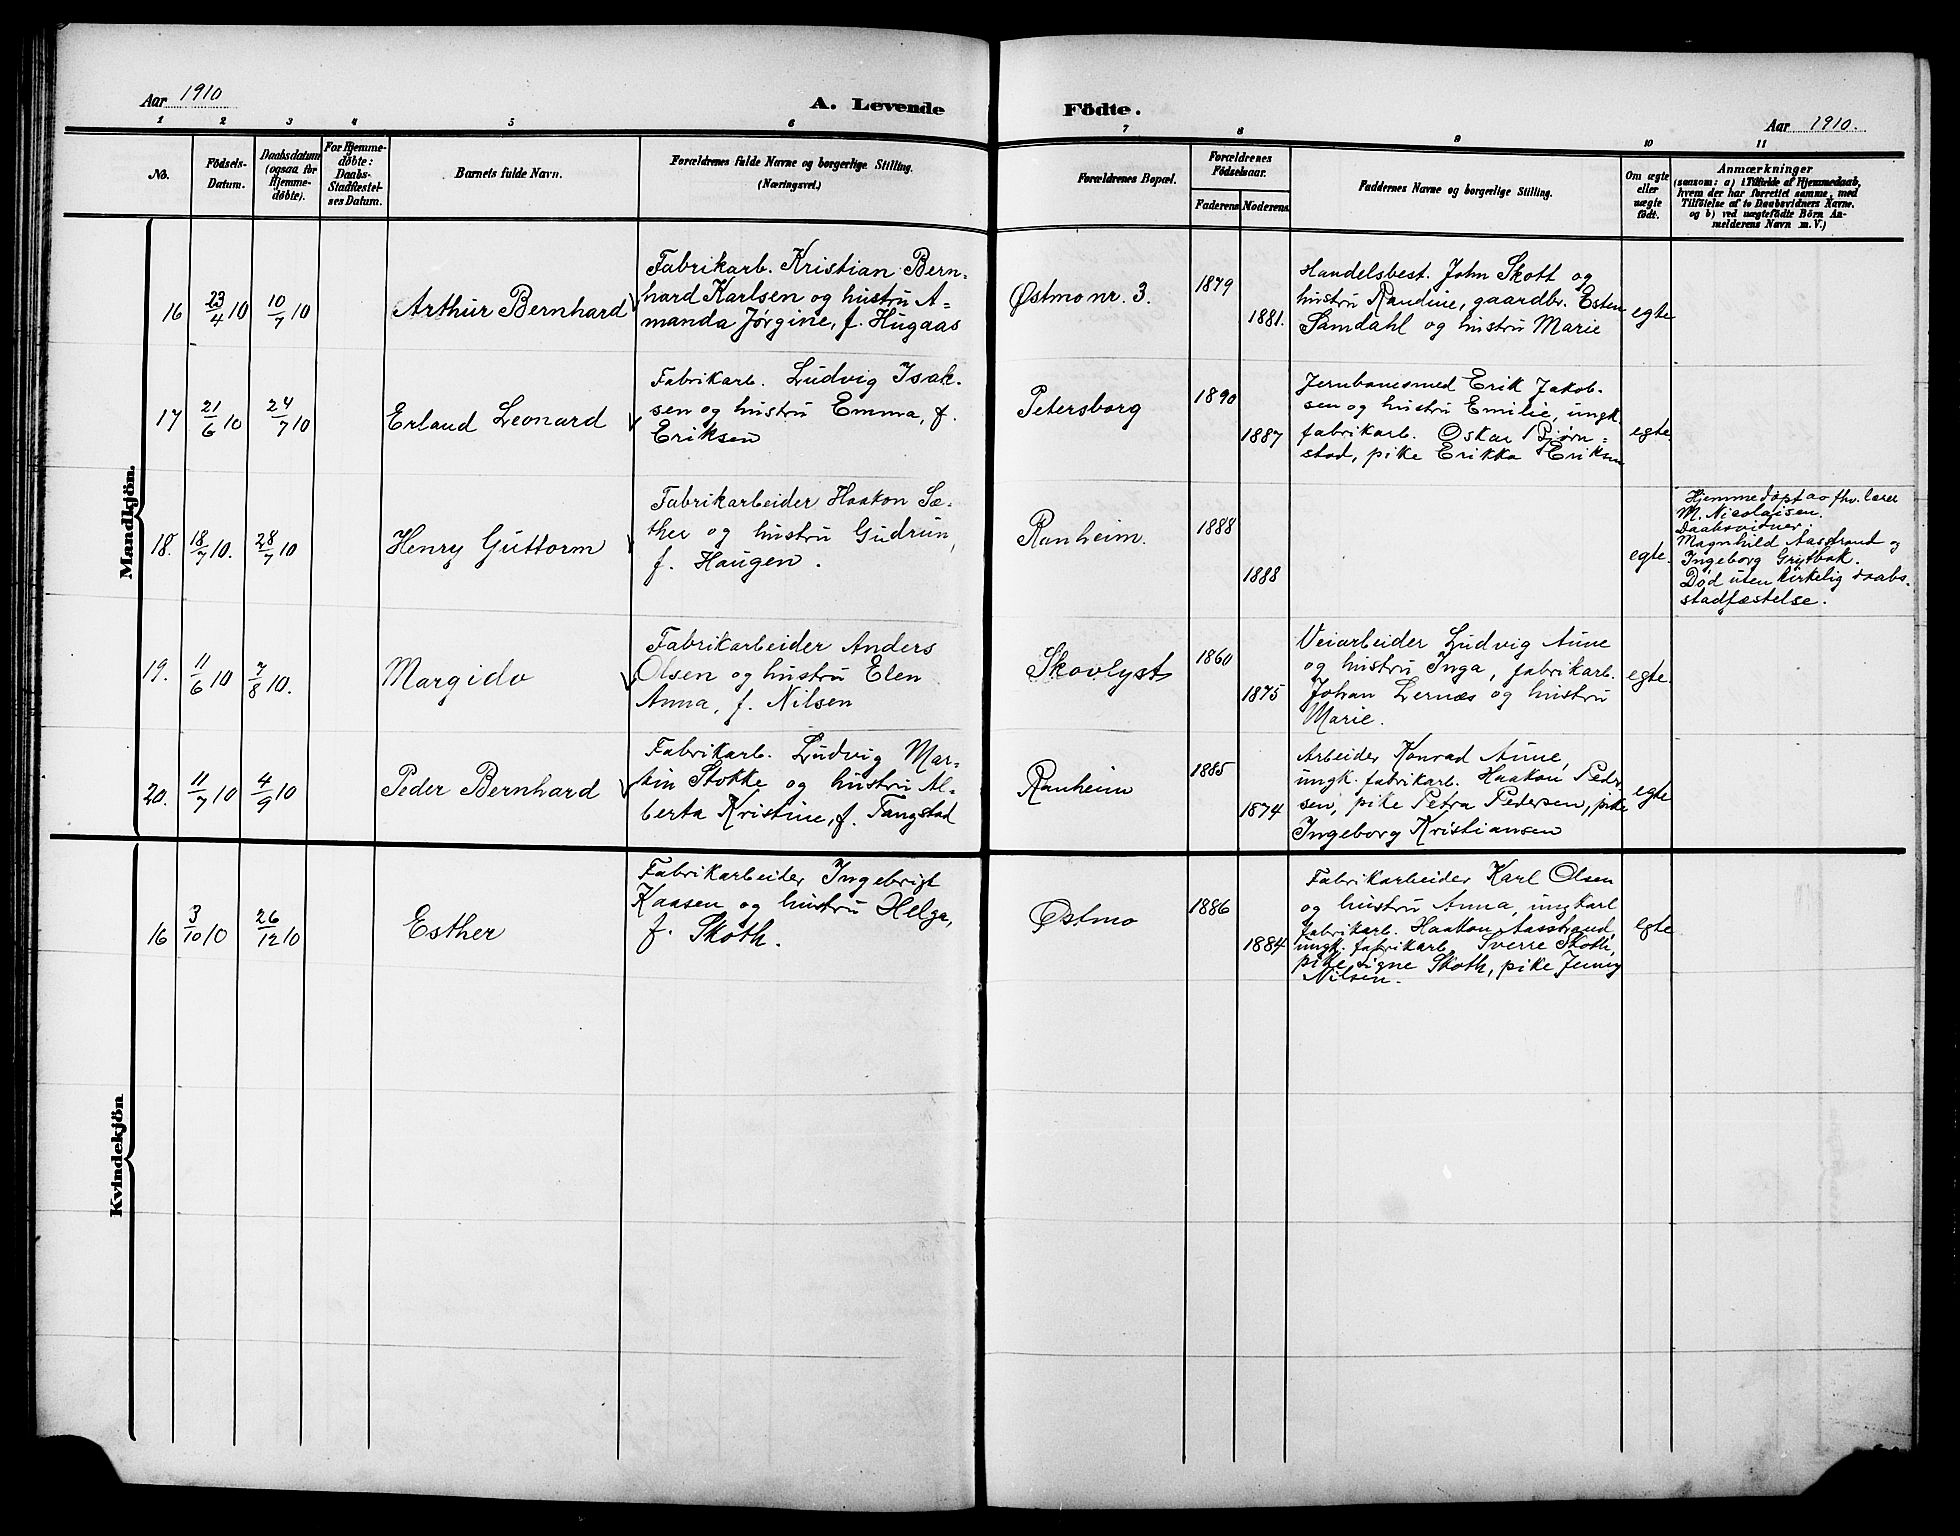 Aar 1910
A. Levende
Födte.
Aar 1910.
1 2 3 4 5 6 7 8 9 10 11
No.
Födsels-
Datum.
Daabsdatum
(ogsaa for
Hjemme-
döbte).
For Hjemme-
döbte:
Daabs-
Stadfæstel-
ses Datum.
Barnets fulde Navn.
Forældrenes fulde Navne og borgerlige Stilling.
(Næringsvei.)
Forældrenes Bopæl.
Forældrenes
Födselsaar.
Faderens Moderens
Faddernes Navne og borgerlige Stilling.
Om ægte
eller
uægte
födt.
Anmærkninger
(saasom: a) i Tilfælde af Hjemmedaab,
hvem der har forrettet samme, med
Tilföielse af to Daabsvidners Navne.
og b) ved uægtefödte Börn An-
melderens Navn m. V.)
Mandkjön.
16 23/4 10 10/7 10 Arthur Bernhard
Fabrikarb. Kristian Bern-
hard Karlsen og hustru A-
manda Jørgine, f. Hugaas
Østmo nr. 3.
1879
1881.
Handelsbest. John Skott og
hustru Randine, gaardbr. Esten
Samdahl og hustru Marie
egte
17 21/6 10 24/7 10 Erland Leonard
Fabrikarb. Ludvig Isak-
sen og hustru Emma, f.
Eriksen
Petersborg
1890
1887
Jernbanesmed Erik Jakob-
sen og hustru Emilie, ungk.
fabrikarb. Oskar Bjørn-
stad, pike Erikka Eriksen
egte.
18. 18/7 10. 28/7 10 Henry Guttorm
Fabrikarbeider Haakon Sæ-
ther og hustru Gudrun,
f. Haugen.
Ranheim.
1888
1888
egte.
Hjemmedøpt av fhv. lærer
M. Nicolaisen.
Daabsvidner:
Magnhild Aasstrand og
Ingeborg Grytbak.
Død uten kirkelig daabs-
stadfæstelse.
19. 11/6 10 7/8 10. Margido
Fabrikarbeider Anders
Olsen og hustru Elen
Anna, f. Nilsen
Skovlyst
1860
1875
Veiarbeider Ludvig Aune
og hustru Inga, fabrikarb.
Johan Lernæs og hustru
Marie.
egte.
20. 11/7 10 4/9 10 Peder Bernhard
Fabrikarb. Ludvig Mar-
tin Stokke og hustru Al-
berta Kristine, f. Tangstad
Ranheim
1885
1874
Arbeider Konrad Aune,
ungk. fabrikarb. Haakon Peder-
sen, pike Petra Pedersen, pike
Ingeborg Kristiansen
egte
Kvindekjön
16 3/10 10 26/12 10 Esther
Fabrikarbeider Ingebrigt
Kaasen og hustru Helga,
f. Skoth.
Østmo
1886
1884
Fabrikarbeider Karl Olsen
og hustru Anna, ungkarl
fabrikarb. Haakon Aasstrand,
ungk. fabrikarb. Sverre Skoth,
pike Signe Skoth, pike Jenny
Nilsen.
egte